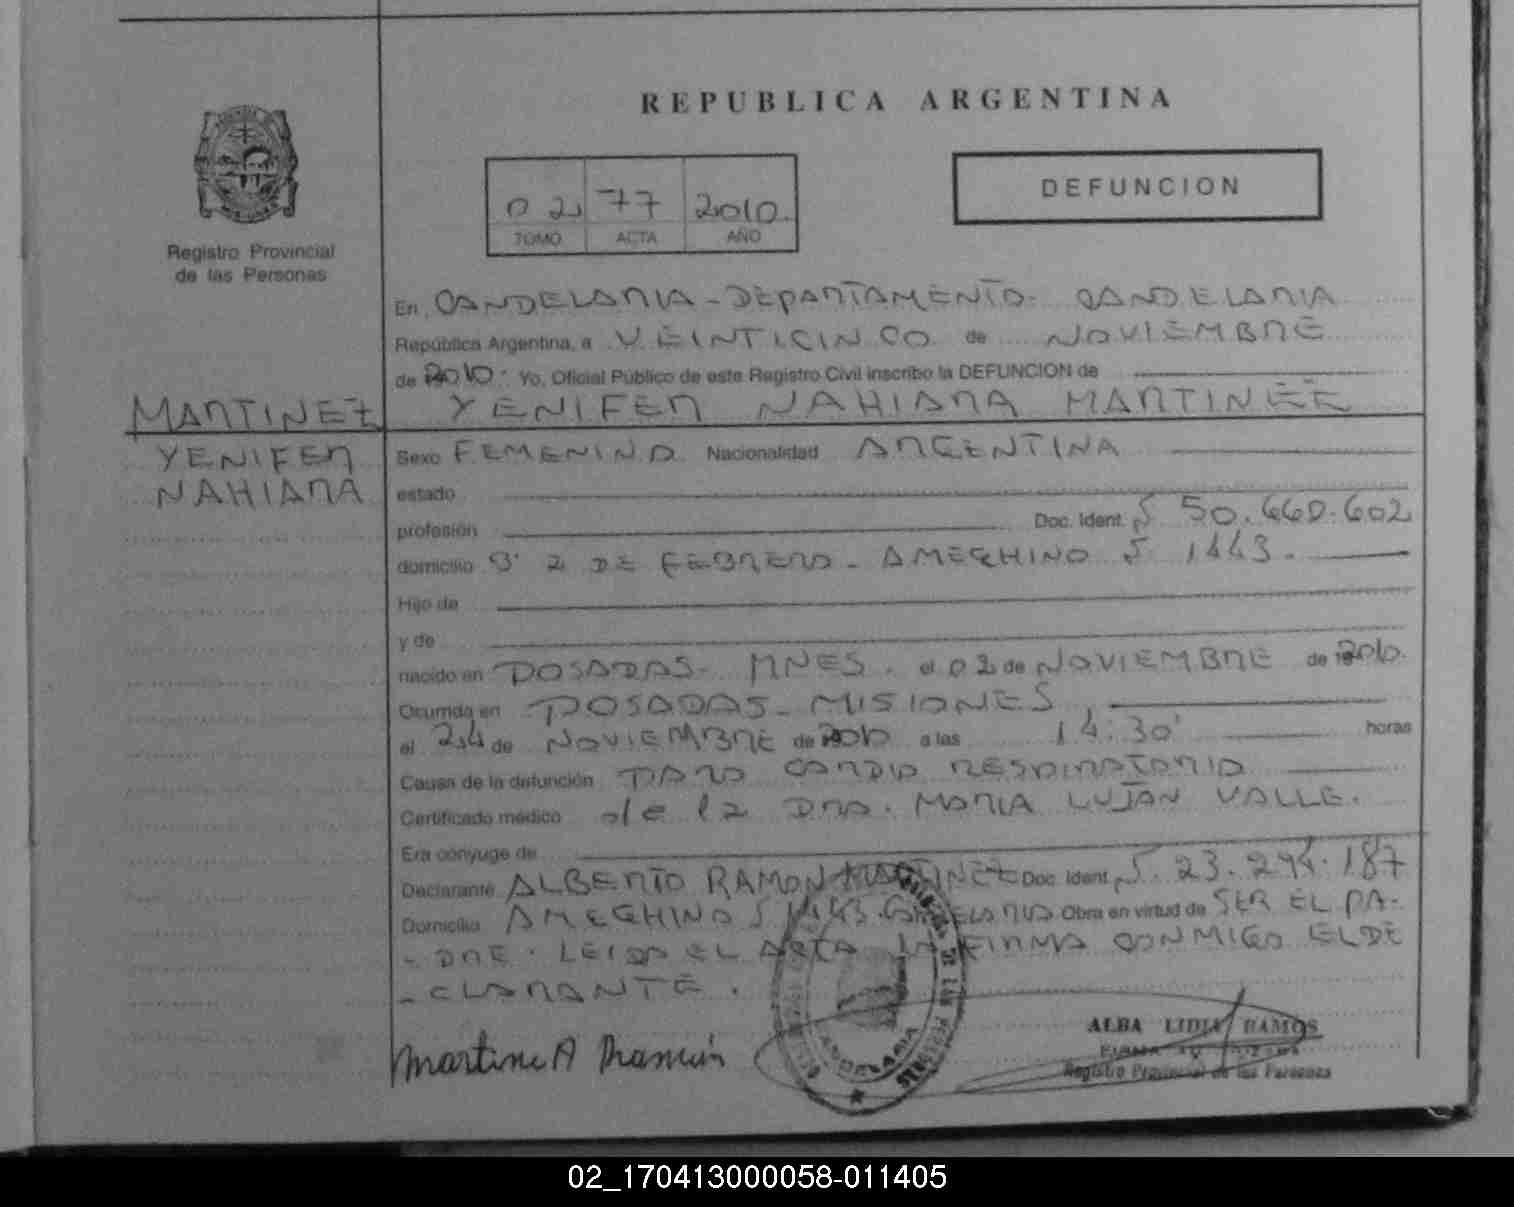 REPUBLICA ARGENTINA
DEFUNCION
02 77 2010
TOMO ACTA AÑO
Registro Provincial
de las Personas
En CANDELARIA - DEPARTAMENTO CANDELARIA
República Argentina, a VEINTICINCO de NOVIEMBRE
de 2010. Yo, Oficial Público de este Registro Civil inscribo la DEFUNCION de
YENIFER NAHIARA MARTINEZ
MARTINEZ
YENIFER
NAHIARA
Sexo FEMENINO Nacionalidad ARGENTINA
estado
profesión Doc. Ident. 50.660.602
domicilio Bº 2 DE FEBRERO - AMEGHINO 1443.
Hijo de
y de
nacido en POSADAS - MNES. el 02 de NOVIEMBRE de 2010.
Ocurrida en POSADAS - MISIONES
el 24 de NOVIEMBRE de 2010 a las 14:30' horas
Causa de la defunción PARO CARDIO RESPIRATORIO
Certificado médico de la DRA. MARIA LUJAN VALLE.
Era cónyuge de
Declarante ALBERTO RAMON MARTINEZ Doc. Ident. 23.294.187
Domicilio AMEGHINO 1443. CANDELARIA Obra en virtud de SER EL PA-
-DRE. LEIDA EL ACTA LA FIRMA CONMIGO EL DE
-CLARANTE.
ALBA LIDIA RAMOS
Registro Provincial de las Personas
CANDELARIA
02_170413000058-011405